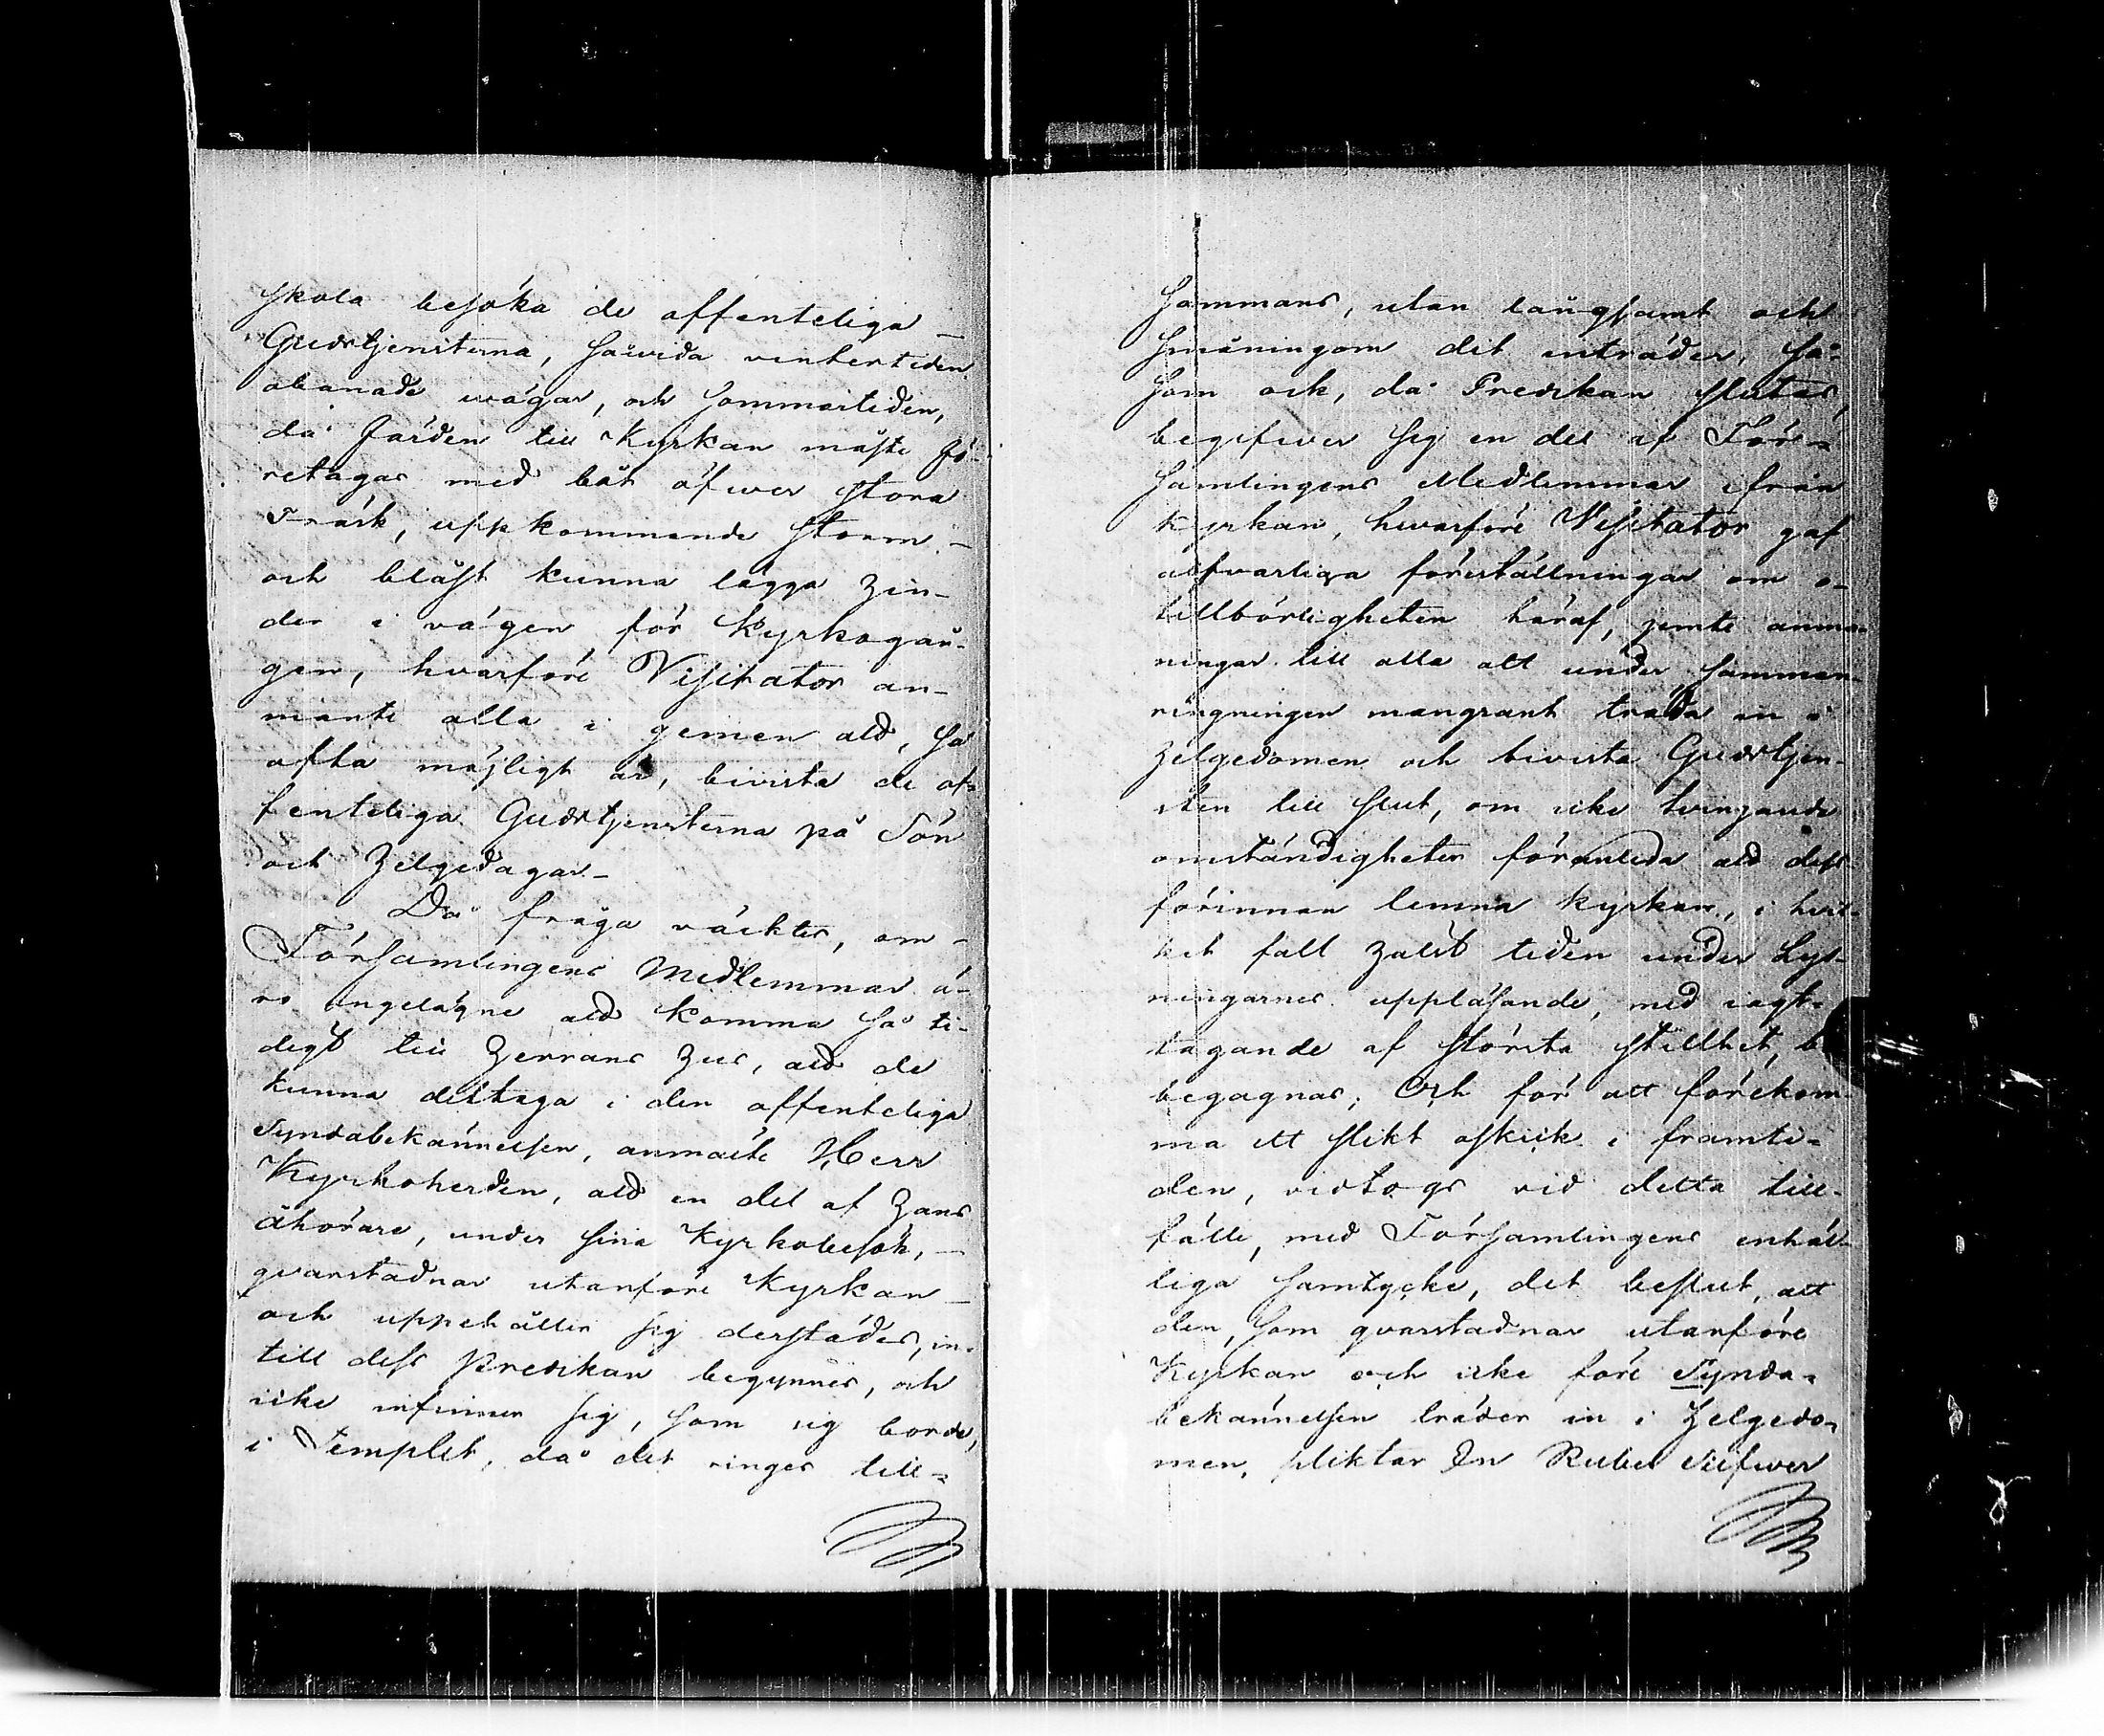 skola besöka de offenteliga
Gudstjensterna, såvida vintertiden
obanade vägar, och sommartiden,
då färden till Kyrkan måste fö-
retagas med båt öfwer stora
Träsk, uppkommande storm
och blåst kunna lägga hin-
der i vägen för Kyrkogån-
gen, hvarföre Visitator an-
mante alla i gemen att, så
ofta möjligt är, bivista de of-
fenteliga Gudstjensterna på Sön
och Helgedagar.
Då fråga väcktes, om
Församlingens Medlemmar ä-
ro angelägne att komma så ti-
digt till Herrans Hus, att de
kunna deltaga i den offenteliga
Syndabekännelsen, anmälte Herr
Kyrkoherden, att en del af Hans
åhörare, under sina Kyrkobesök,
qvarstadnar utanföre Kyrkan
och uppehåller sig derstädes, in-
till dess Predikan begynnes, och
icke infinner sig, som sig borde,
i Templet, då det ringes till-
sammans, utan långsamt och
småningom dit inträder, så-
som ock, då Predikan slutas,
begifwer sig en del af För-
samlingens Medlemmar ifrån
kyrkan, hwarföre Visitator gaf
alfvarliga föreställningar om o-
tillbörligheten häraf, jemte anma-
ningar till alla att under samman-
ringningen mangrant träda in i
Helgedomen och bivista Gudstjen-
sten till slut, om icke tvingande
omständigheter föranleda att dess
förinnan lemna kyrkan, i hvil-
ket fall helst tiden under Lys-
ningarnes uppläsande, med iagt-
tagande af största stillhet, b
begagnas; Och för att förekom-
ma ett slikt oskick i framti-
den, vidtogs vid detta till-
fälle, med Församlingens enhäl-
liga samtycke, det beslut, att
den, som qvarstadnar utanföre
Kyrkan och icke före Synda-
bekännelsen träder in i Helgedo-
men, pliktar En Rubel Silfwer